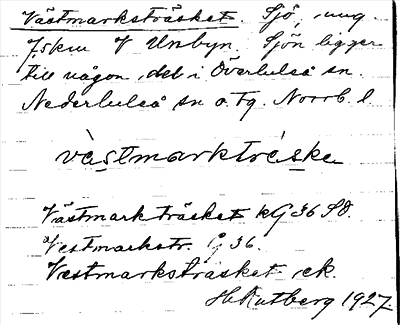 Västmarksträsket. Sjö, ung.
7,5 km V Unbyn. Sjön ligger
till någon del i Överluleå sn.
Nederluleå sn o. tg. Norrb. l.
västmarkträ́ske
Västmarkträsket kG 36 SO.
Vestmarkstr. G 36.
Vestmarksträsket ek.
H. Rutberg 1927